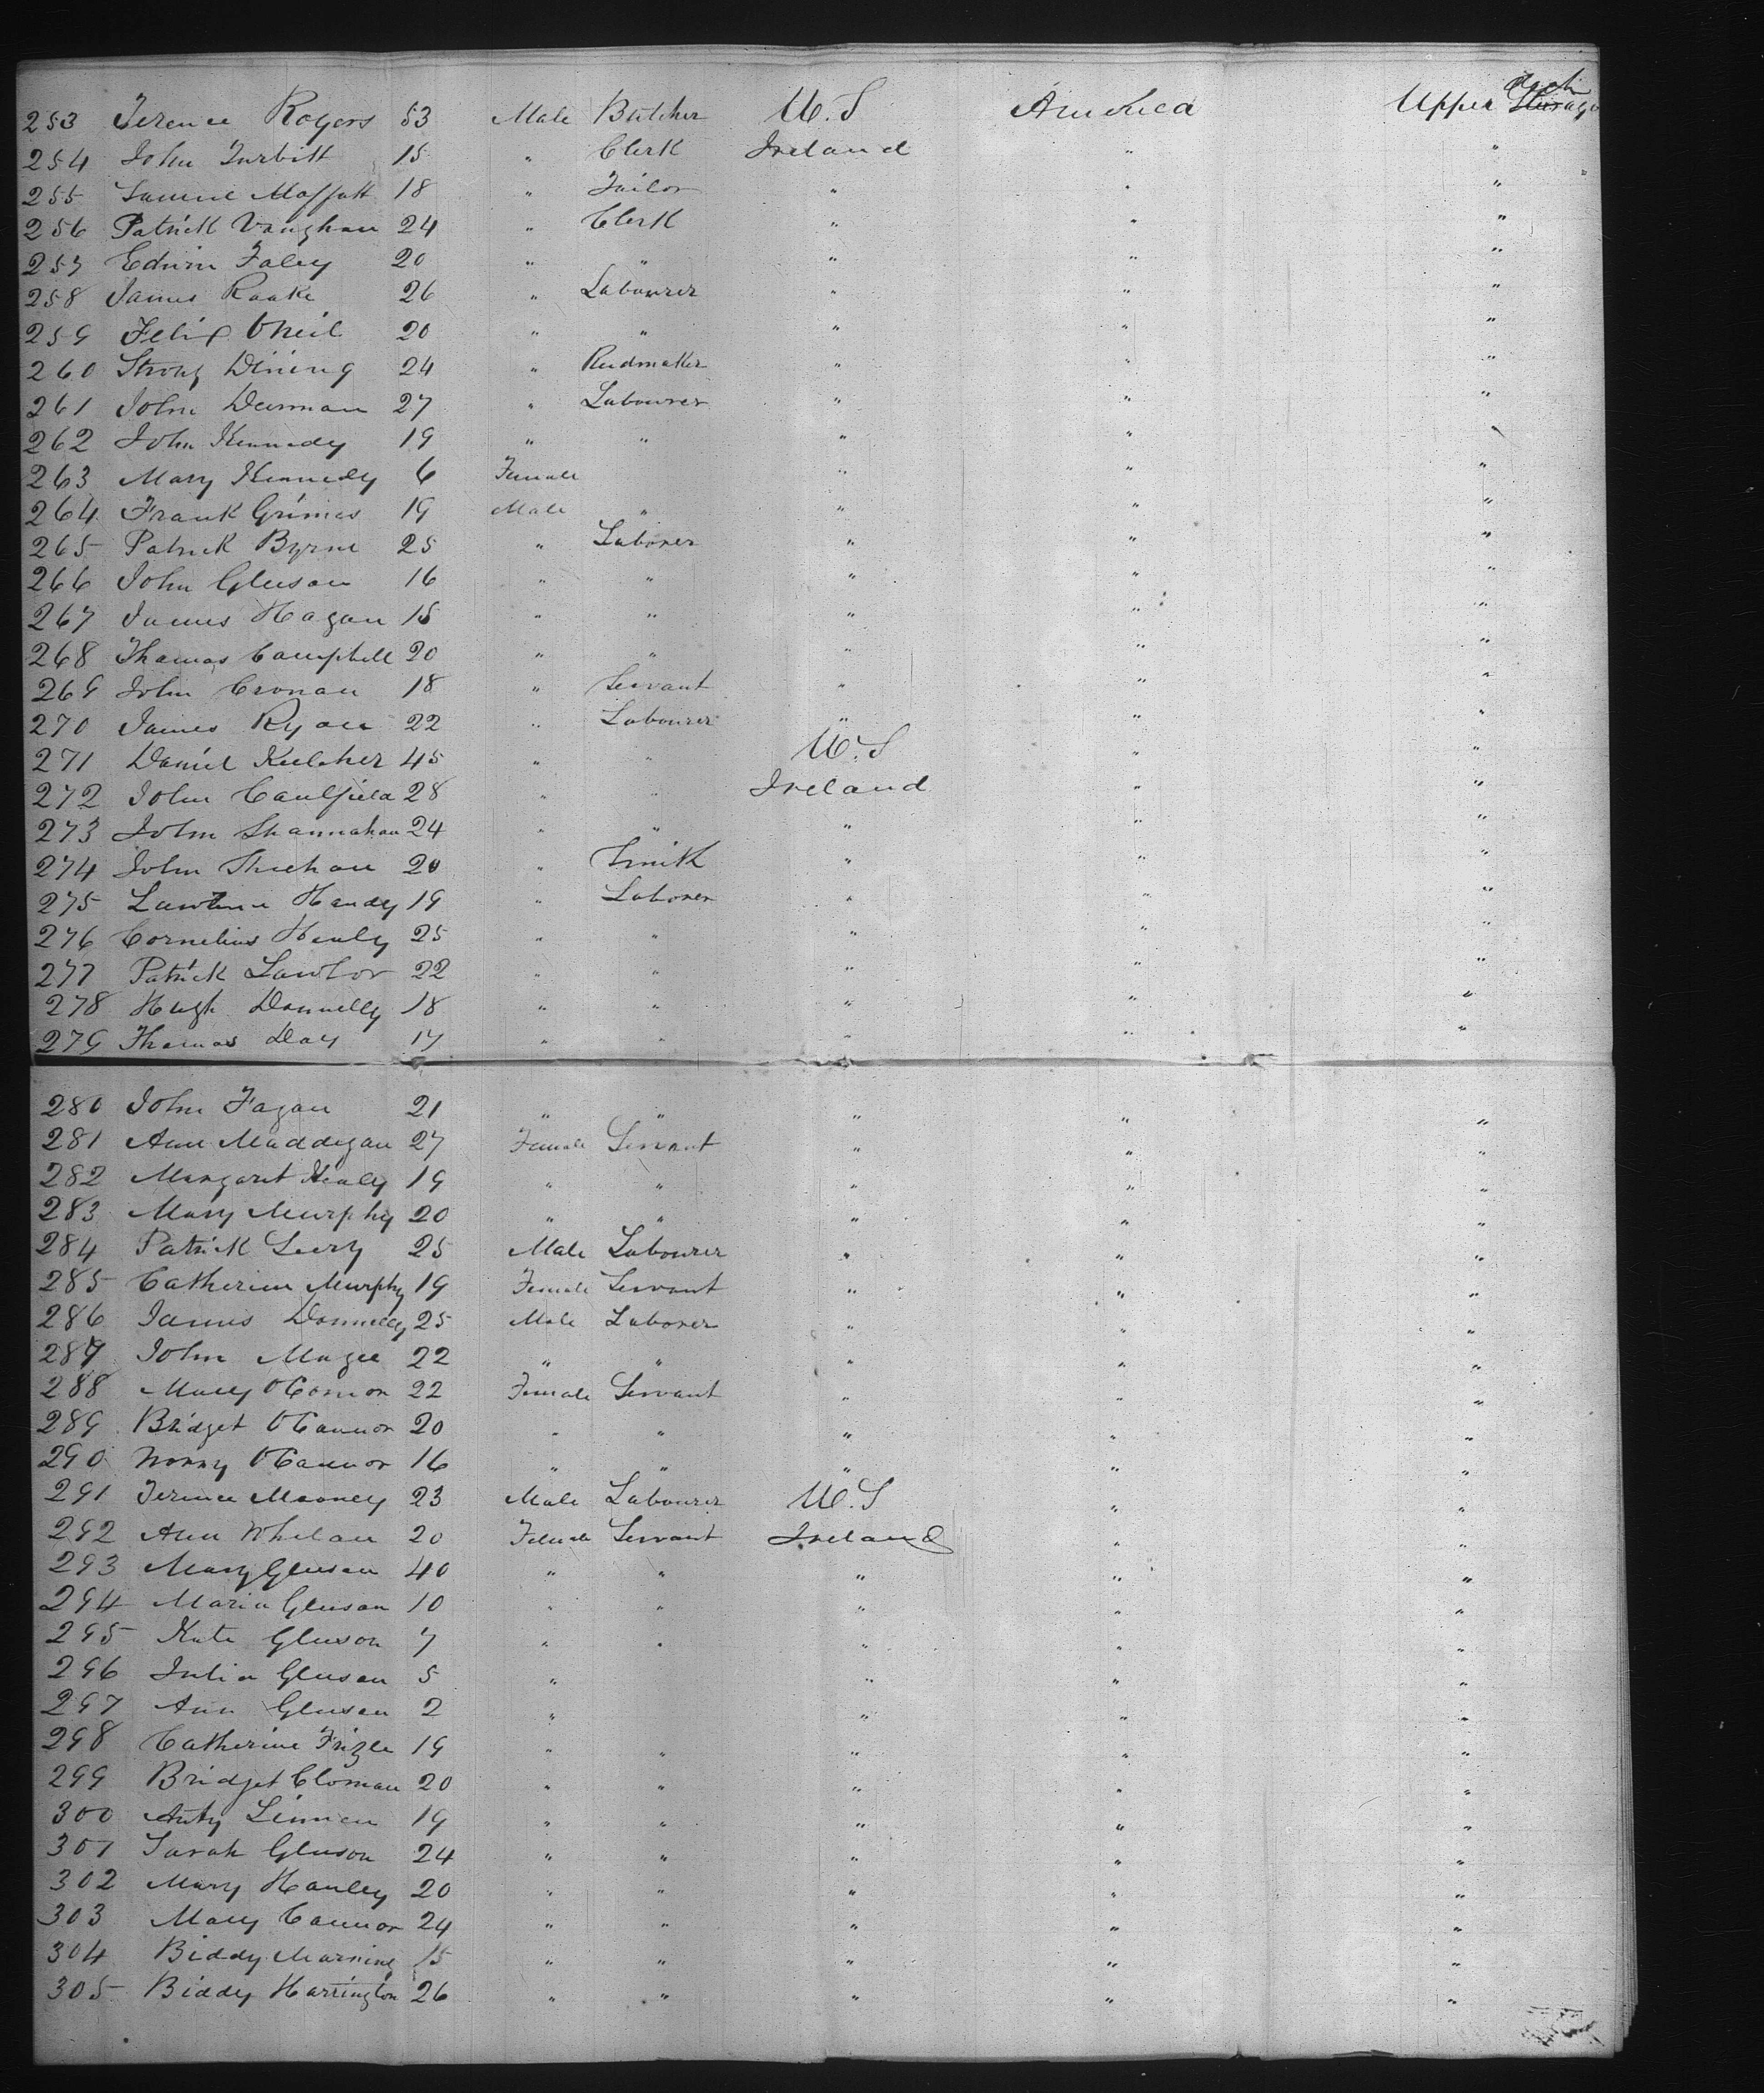 253 Terence Rogers 53 Male Butcher U.S America Upper Sturage deck
254 John Turbitt 15 " Clerk Ireland " "
255 Samuel Moffatt 18 " Tailor " " "
256 Patrick Vaughan 24 " Clerk " " "
257 Edwin Foley 20 " " " " "
258 James Roake 26 " Labourer " " "
259 Felix ONeil 20 " " " " "
260 Strong Dining 24 " Reedmaker " " "
261 John Dennan 27 " Labourer " " "
262 John Kennedy 19 " " " " "
263 Mary Kennedy 6 Female " " "
264 Frank Grimes 19 Male " " " "
265 Patrick Byrne 25 " Laborer " " "
266 John Gleeson 16 " " " " "
267 James Hagan 15 " " " " "
268 Thomas Campbell 20 " " " " "
269 John Cronan 18 " Servant " " "
270 James Ryan 22 " Labourer " " "
271 Daniel Kelcher 45 " " U.S " "
272 John Caulfield 28 " " Ireland " "
273 John Shannahan 24 " " " " "
274 John Sheehan 20 " Smith " " "
275 Lawrence Handy 19 " Laborer " " "
276 Cornelius Healy 25 " " " " "
277 Patrick Lawlor 22 " " " " "
278 Hugh Donnelly 18 " " " " "
279 Thomas Day 17 " " " " "
280 John Fagan 21 " " " " "
281 Ann Maddigan 27 Female Servant " " "
282 Margaret Healy 19 " " " " "
283 Mary Murphy 20 " " " " "
284 Patrick Leery 25 Male Labourer " " "
285 Catherine Murphy 19 Female Servant " " "
286 James Donnelly 25 Male Laborer " " "
287 John Magee 22 " " " " "
288 Mary OConnor 22 Female Servant " " "
289 Bridget OConnor 20 " " " " "
290 Norry OConnor 16 " " " " "
291 Terence Mooney 23 Male Labourer U.S " "
292 Ann Whelan 20 Female Servant Ireland " "
293 Mary Gleeson 40 " " " " "
294 Maria Gleeson 10 " " " " "
295 Kate Gleeson 7 " " " " "
296 Julia Gleeson 5 " " " "
297 Ann Gleeson 2 " " " "
298 Catherine Frizle 19 " " " " "
299 Bridget Cloman 20 " " " " "
300 Anty Linnen 19 " " " " "
301 Sarah Gleeson 24 " " " " "
302 Mary Hanley 20 " " " " "
303 Mary Connor 24 " " " " "
304 Biddy Marning 15 " " " " "
305 Biddy Harrington 26 " " " " "